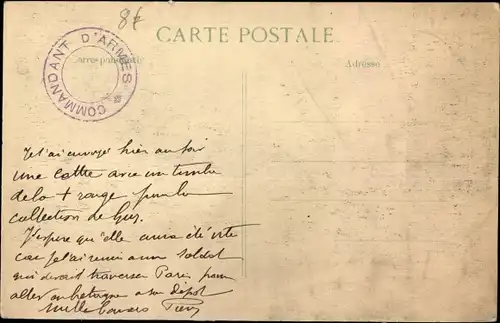 8€
CARTE POSTALE
Correspondance
Adresse
COMMANDANT D'ARMES
Je t'ai envoyé hier au soir
une lettre avec un timbre
de la + rouge pour la
collection de
J'espère qu'elle aura été vite
car je l'ai remis a un soldat
qui devait traverser Paris pour
aller en bretagne a son dépôt
Mille baisers